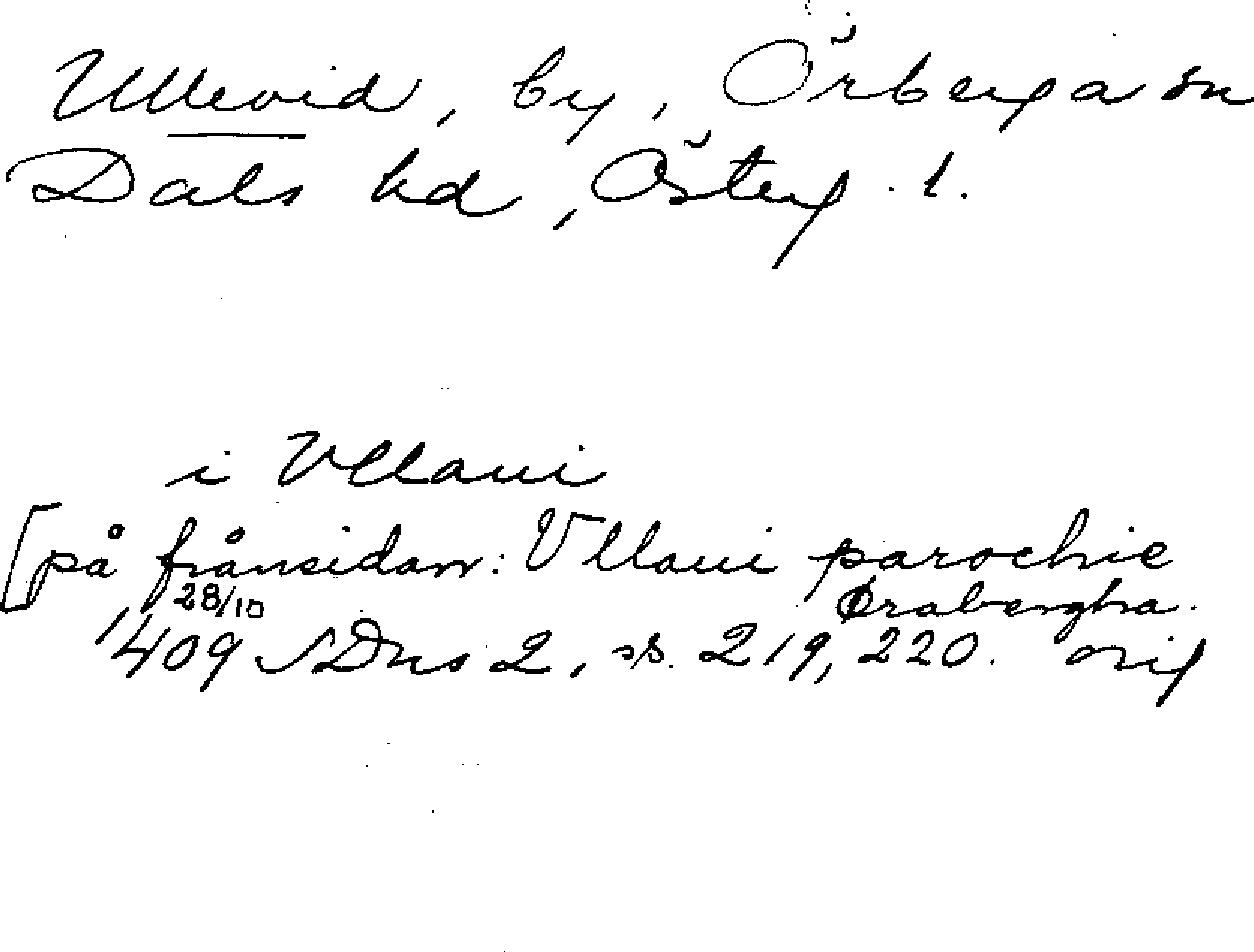 Ullevid, by, Örberga sn
Dals hd, Österg. l.
i Vllaui
[på frånsidan: Vllaui parochie
Ørabergha.
28/10
1409 SDns 2, ss. 219, 220. orig